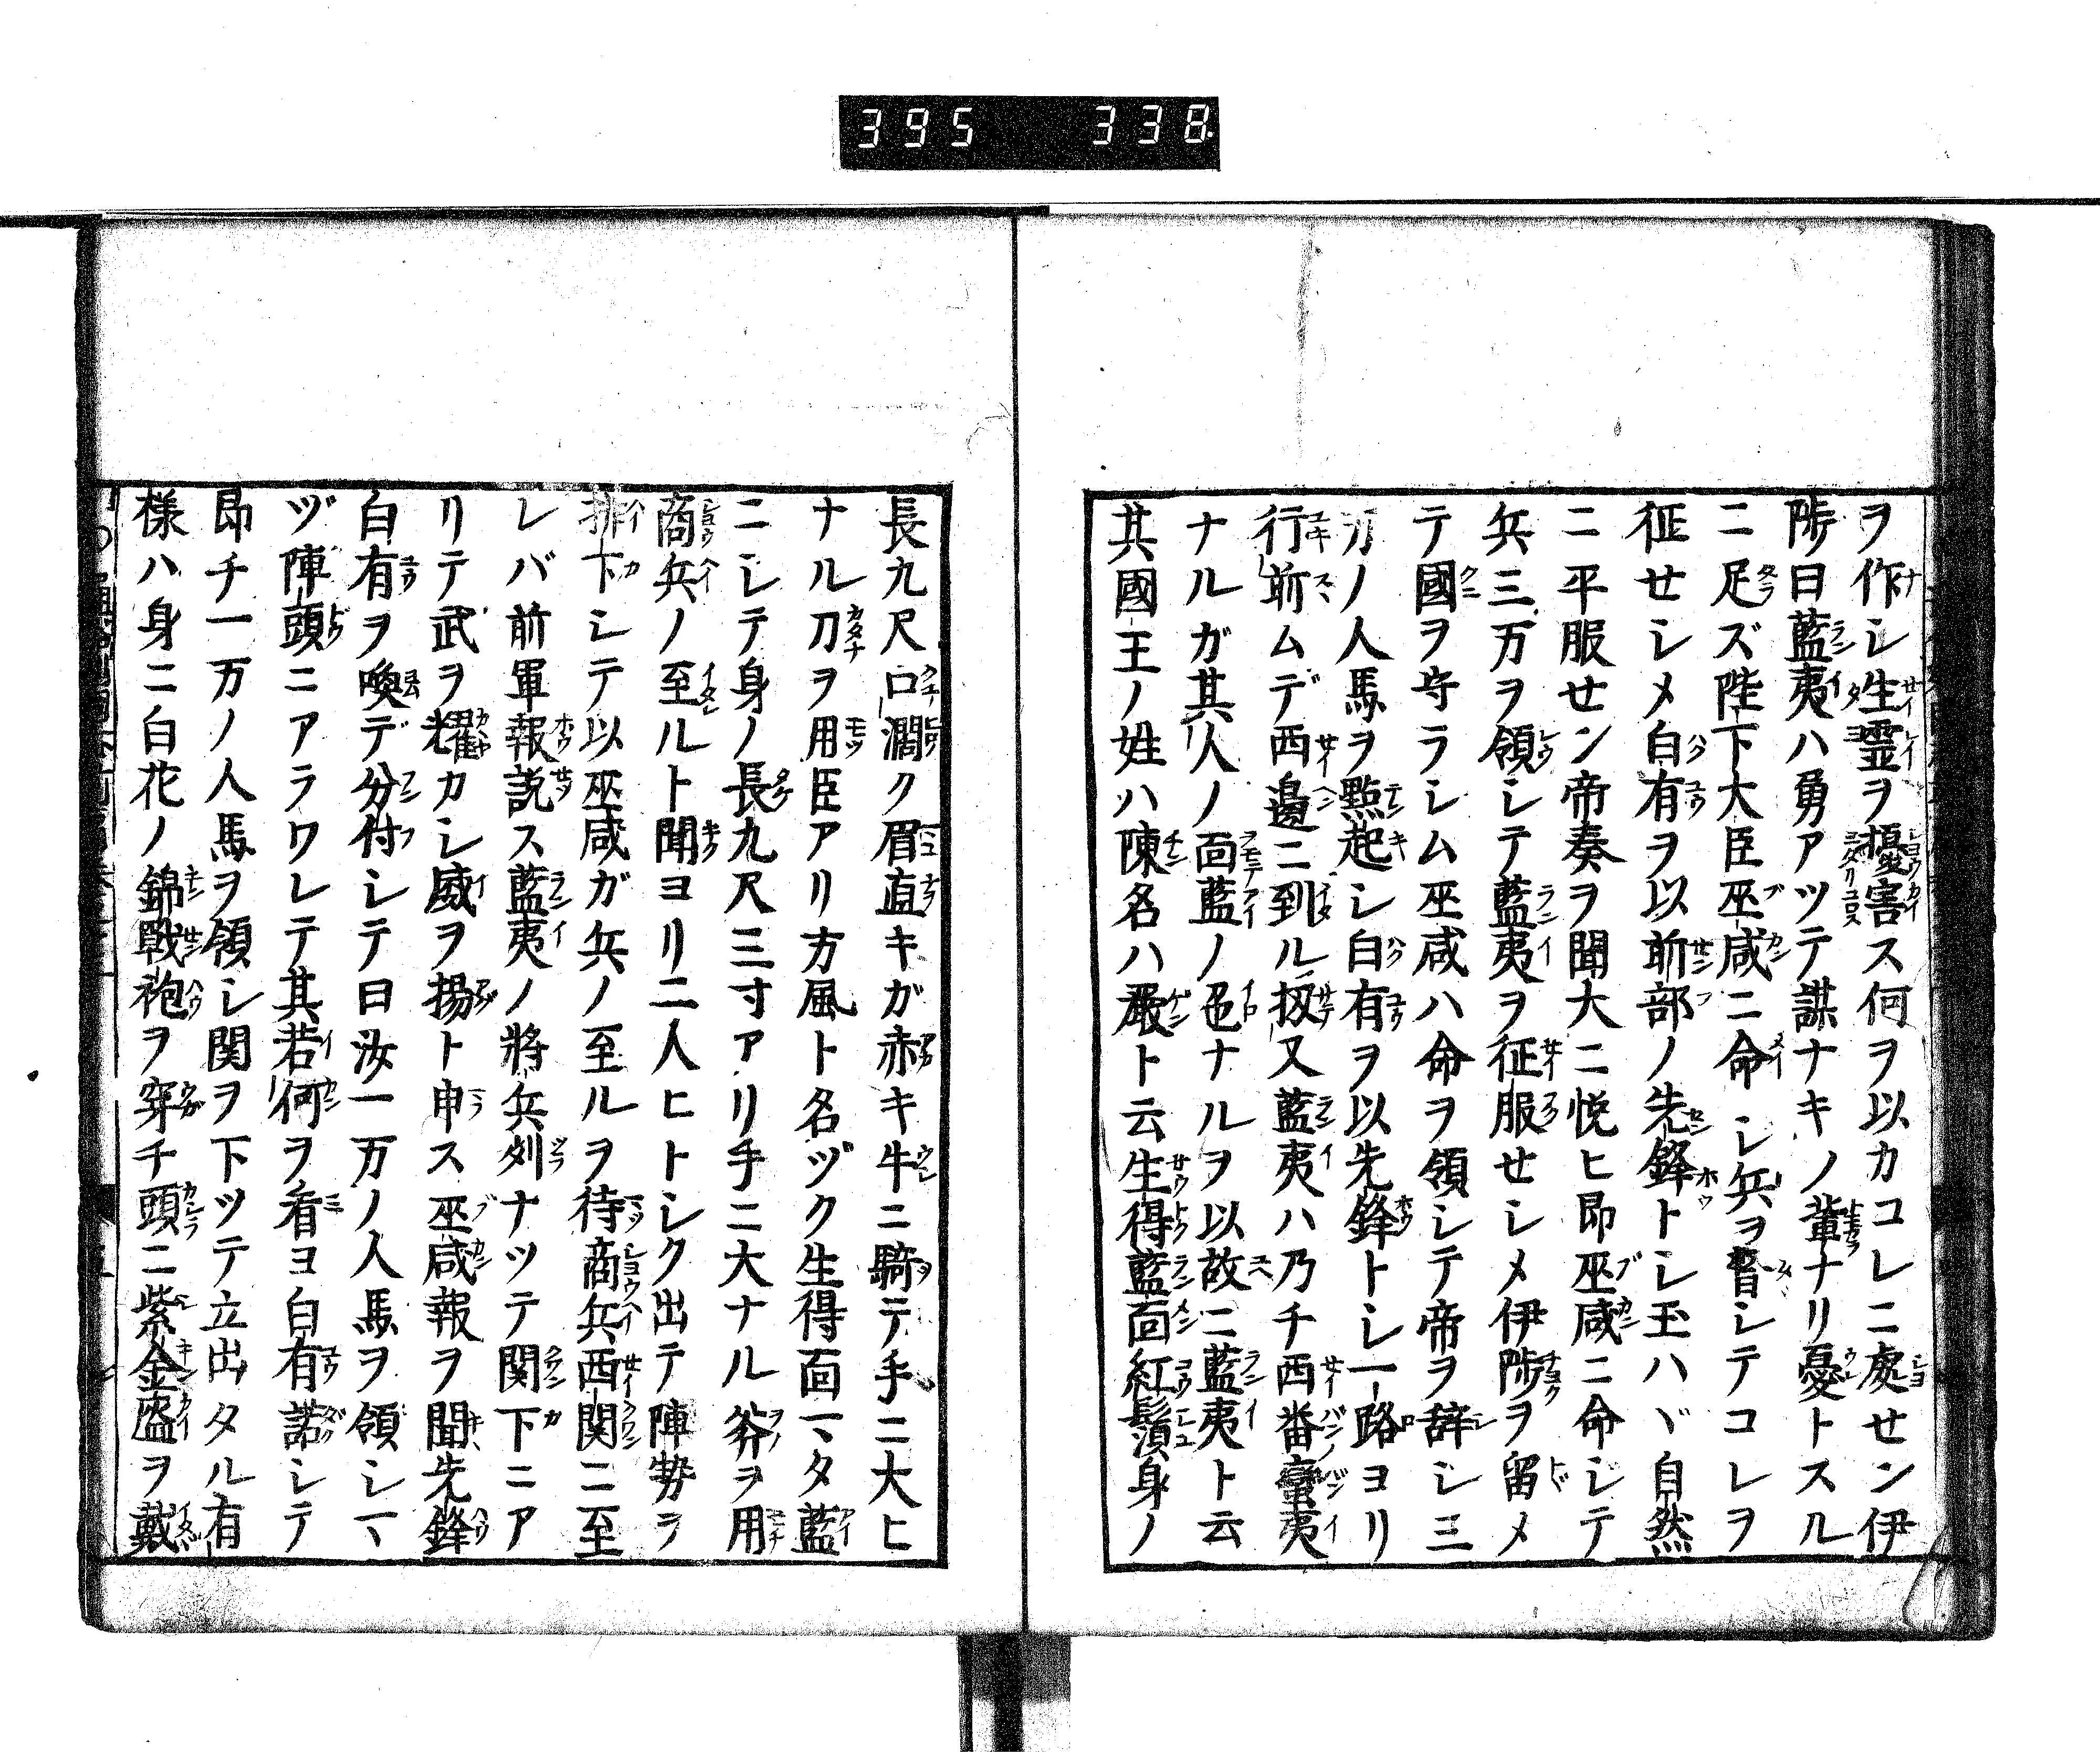 395 338
ヲ作シ生霊ヲ擾害ス何ヲ以カコレニ處セン伊
陟曰藍夷ハ勇アツテ謀ナキノ輩ナリ憂トスル
ニ足ズ陛下大臣巫咸ニ命シ兵ヲ督シテコレヲ
征セシメ白有ヲ以前部ノ先鋒トシ玉ハヾ自然
ニ平服セン帝奏ヲ聞大ニ悦ヒ即巫咸ニ命ジテ
兵三万ヲ領シテ藍夷ヲ征服セシメ伊陟ヲ留メ
テ國ヲ守ラシム巫咸ハ命ヲ領シテ帝ヲ辞シ三
万ノ人馬ヲ點起シ白有ヲ以先鋒トシ一路ヨリ
行前ムデ西邉ニ到ル扨又藍夷ハ乃チ西番蠻夷
ナルガ其人ノ面藍ノ色ナルヲ以故ニ藍夷ト云
其國王ノ姓ハ陳名ハ嚴ト云生得藍面紅鬚身ノ
長九尺口濶ク眉直キガ赤キ牛ニ騎テ手ニ大ヒ
ナル刀ヲ用臣アリ方風ト名ヅク生得面マタ藍
ニシテ身ノ長九尺三寸アリ手ニ大ナル斧ヲ用
商兵ノ至ルト聞ヨリ二人ヒトシク出テ陣勢ヲ
排下シテ以巫咸ガ兵ノ至ルヲ待商兵西関ニ至
レバ前軍報説ス藍夷ノ將兵列ナツテ関下ニア
リテ武ヲ耀カシ威ヲ揚ト申ス巫咸報ヲ聞先鋒
白有ヲ喚デ分付シテ曰汝一万ノ人馬ヲ領シマ
ヅ陣頭ニアラワレテ其若何ヲ看ヨ白有諾シテ
即チ一万ノ人馬ヲ領シ関ヲ下ツテ立出タル有
様ハ身ニ白花ノ錦戰袍ヲ穿チ頭ニ紫金盔ヲ戴